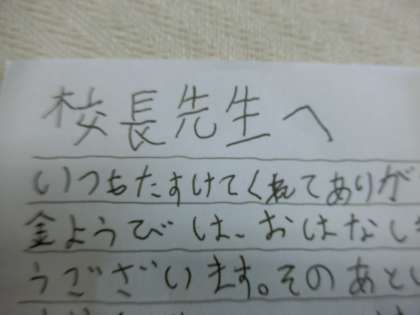 校長先生へ
いつもたすけてくれてありが
金ようびは、おはなしき
うございます。そのあとい